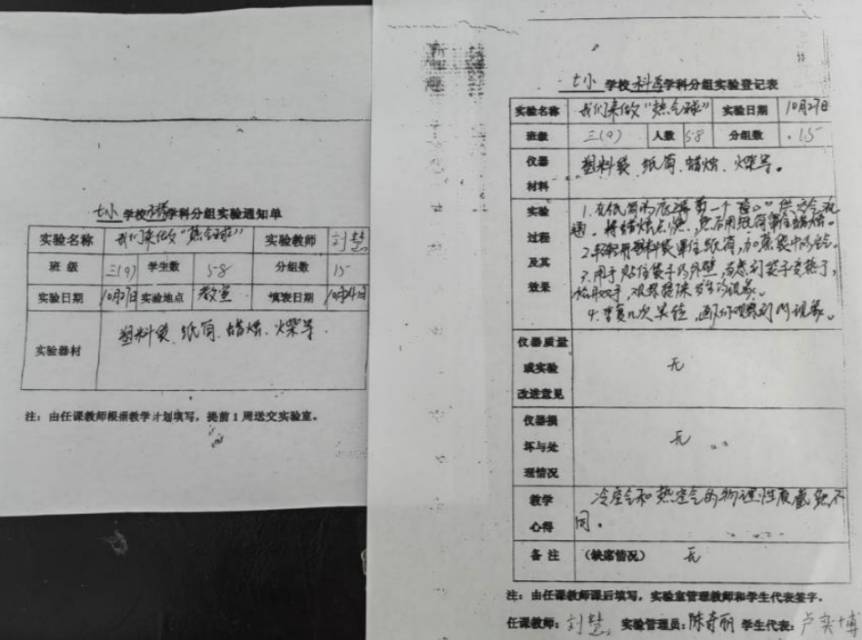 七小 学校科学学科分组实验通知单
实验名称 我们来做“热气球” 实验教师 刘慧
班级 三(9) 学生数 58 分组数 15
实验日期 10月27日 实验地点 教室 填表日期
实验器材 塑料袋、纸筒、蜡烛、火柴等.
注：由任课教师根据教学计划填写，提前1周送交实验室。
七小 学校科学学科分组实验登记表
实验名称 我们来做“热气球” 实验日期 10月27日
班级 三(9) 人数 58 分组数 15
仪器
材料
塑料袋、纸筒、蜡烛、火柴等。
实验
过程
及其
效果
1.在纸筒的底端剪一个
将蜡烛点燃，然后用纸筒罩住蜡烛。
2.轻轻用塑料袋罩住纸筒，加热袋中的空气
3.用手贴住袋子的外壁，当感到袋子变热了，
始松手，观察接下来发生的现象。
4.重复几次
仪器质量
或实验
改进意见
无
仪器损
坏与处
理情况
无
教学
心得
冷空气和热空气的物理性质截然不
同。
备注 （缺席情况） 无
注：由任课教师课后填写，实验室管理教师和学生代表签字。
任课教师：刘慧 实验管理员：陈奇丽 学生代表：卢奕博